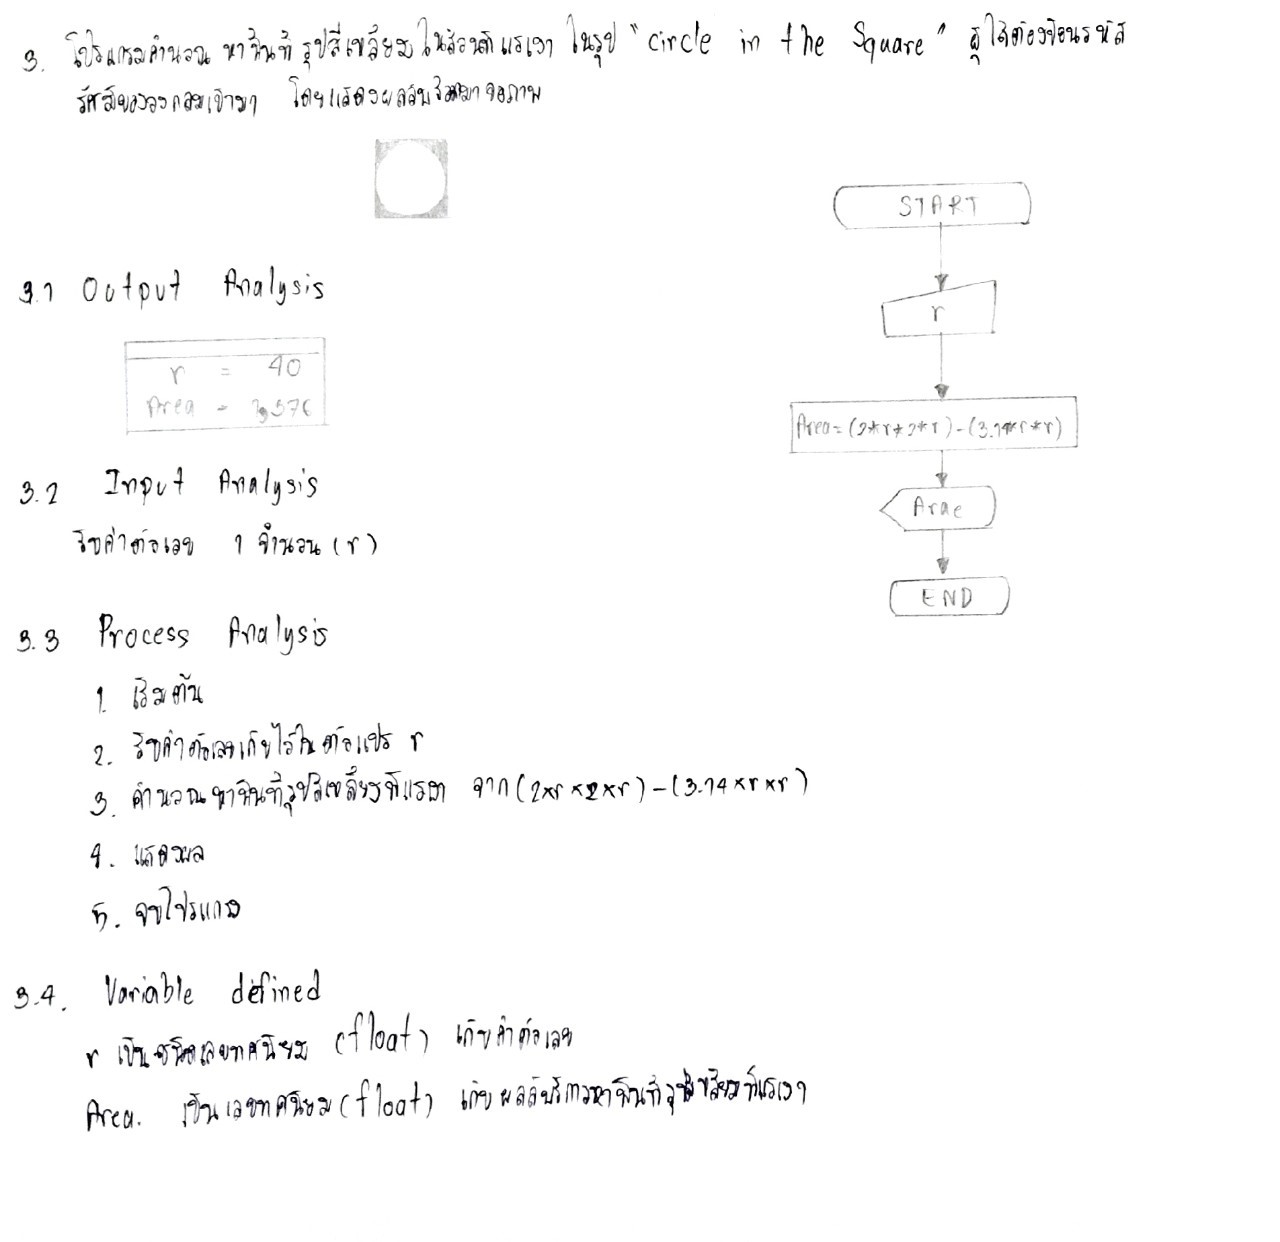 3. โปรแกรมคำนวณ หาพื้นที่ รูปสี่เหลี่ยม ในส่วนที่แรเงา ในรูป "circle in the Square" ผู้ใช้ต้องป้อนรหัส
รัศมีของวงกลมเข้ามา โดยแสดงผลลัพธ์ออกมาจอภาพ
3.1 Output Analysis
r = 40
Area = 1,376
3.2 Input Analysis
รับค่าตัวเลข 1 จำนวน (r)
3.3 Process Analysis
1. เริ่มต้น
2. รับค่าตัวเลขเก็บไว้ใน ตัวแปร r
3. คำนวณหาพื้นที่รูปสี่เหลี่ยมที่แรเงา จาก (2*r*2*r)-(3.14*r*r)
4. แสดงผล
5. จบโปรแกรม
3.4. Variable defined
r เป็นชนิดเลขทศนิยม (float) เก็บค่าตัวเลข
Area. เป็นเลขทศนิยม (float) เก็บผลลัพธ์การหาพื้นที่รูปสี่เหลี่ยมที่แรเงา
START
r
Area=(2*r*2*r)-(3.14*r*r)
Arae
END